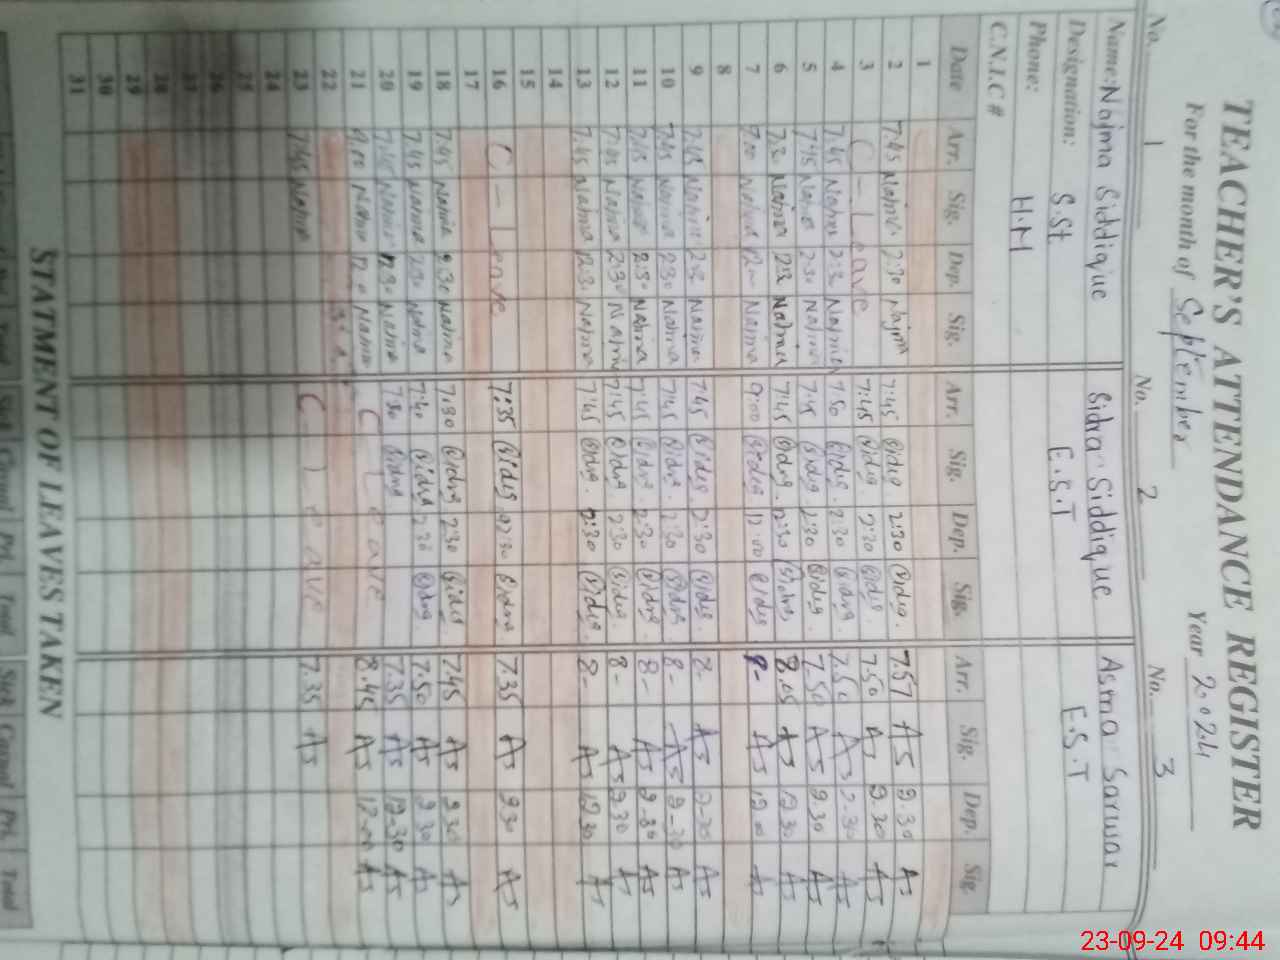 TEACHER'S ATTENDANCE REGISTER
For the month of September Year 2024
No. 1 No. 2 No. 3
Name: Najma Siddique Sidra Siddique Asma Sarwar
Designation: S.St E.S.T E.S.T
Phone: H.M
C.N.I.C #
Date Arr. Sig. Dep. Sig. Arr. Sig. Dep. Sig. Arr. Sig. Dep. Sig.
1
2 7:45 Najma 2:30 Najma 7:45 Sidra. 2:30 Sidra. 7.57 AS 2.30 AS
3 C - Leave 7:45 Sidra. 2:30 Sidra. 7.50 AS 2.30 AS
4 7:45 Najma 2:30 Najma 7:50 Sidra. 2:30 Sidra. 7.50 AS 2.30 AS
5 7:45 Najma 2:30 Najma 7:45 Sidra. 2:30 Sidra. 7.50 AS 2.30 AS
6 Najma Najma 7:45 Sidra. 12:30 Sidra. 8.05 AS 12.30 AS
7 Najma Najma 9:00 Sidra 12:00 Sidra 9- AS 12.00 AS
8
9 7:45 Najma Najma 7:45 Sidra 2:30 Sidra. 8- AS 2-30 AS
10 7:45 Najma 2:30 Najma 7:45 Sidra. 2:30 Sidra 8- AS 2-30 AS
11 7:45 Najma 2:30 Najma 7:45 Sidra. 2:30 Sidra. 8- AS 2-30 AS
12 7:45 Najma 2:30 Najma 7:45 Sidra. 2:30 Sidra. 8- AS 2.30 AS
13 7:45 Najma 12:30 Najma 7:45 Sidra. Sidra. 8- AS 12.30 AS
14
15
16 C - Leave 7:35 Sidra 2:30 Sidra 7.35 AS 2.30 AS
17
18 7:45 Najma 2:30 Najma 7:30 Sidra 2:30 Sidra 7.45 AS 2.30 AS
19 7:45 Najma 2:30 Najma 7:40 Sidra 2:30 Sidra 7.50 AS 2.30 AS
20 7:45 Najma 12:30 Najma 7:30 Sidra 7.35 AS 12.30 AS
21 Najma Najma C Leave 8.45 AS 12.00 AS
22
23 7:45 Najma C - Leave 7.35 AS
24
25
26
27
28
29
30
31
STATMENT OF LEAVES TAKEN
Total Sick Casual Pri. Total Sick Casual Pri. Total
23-09-24 09:44